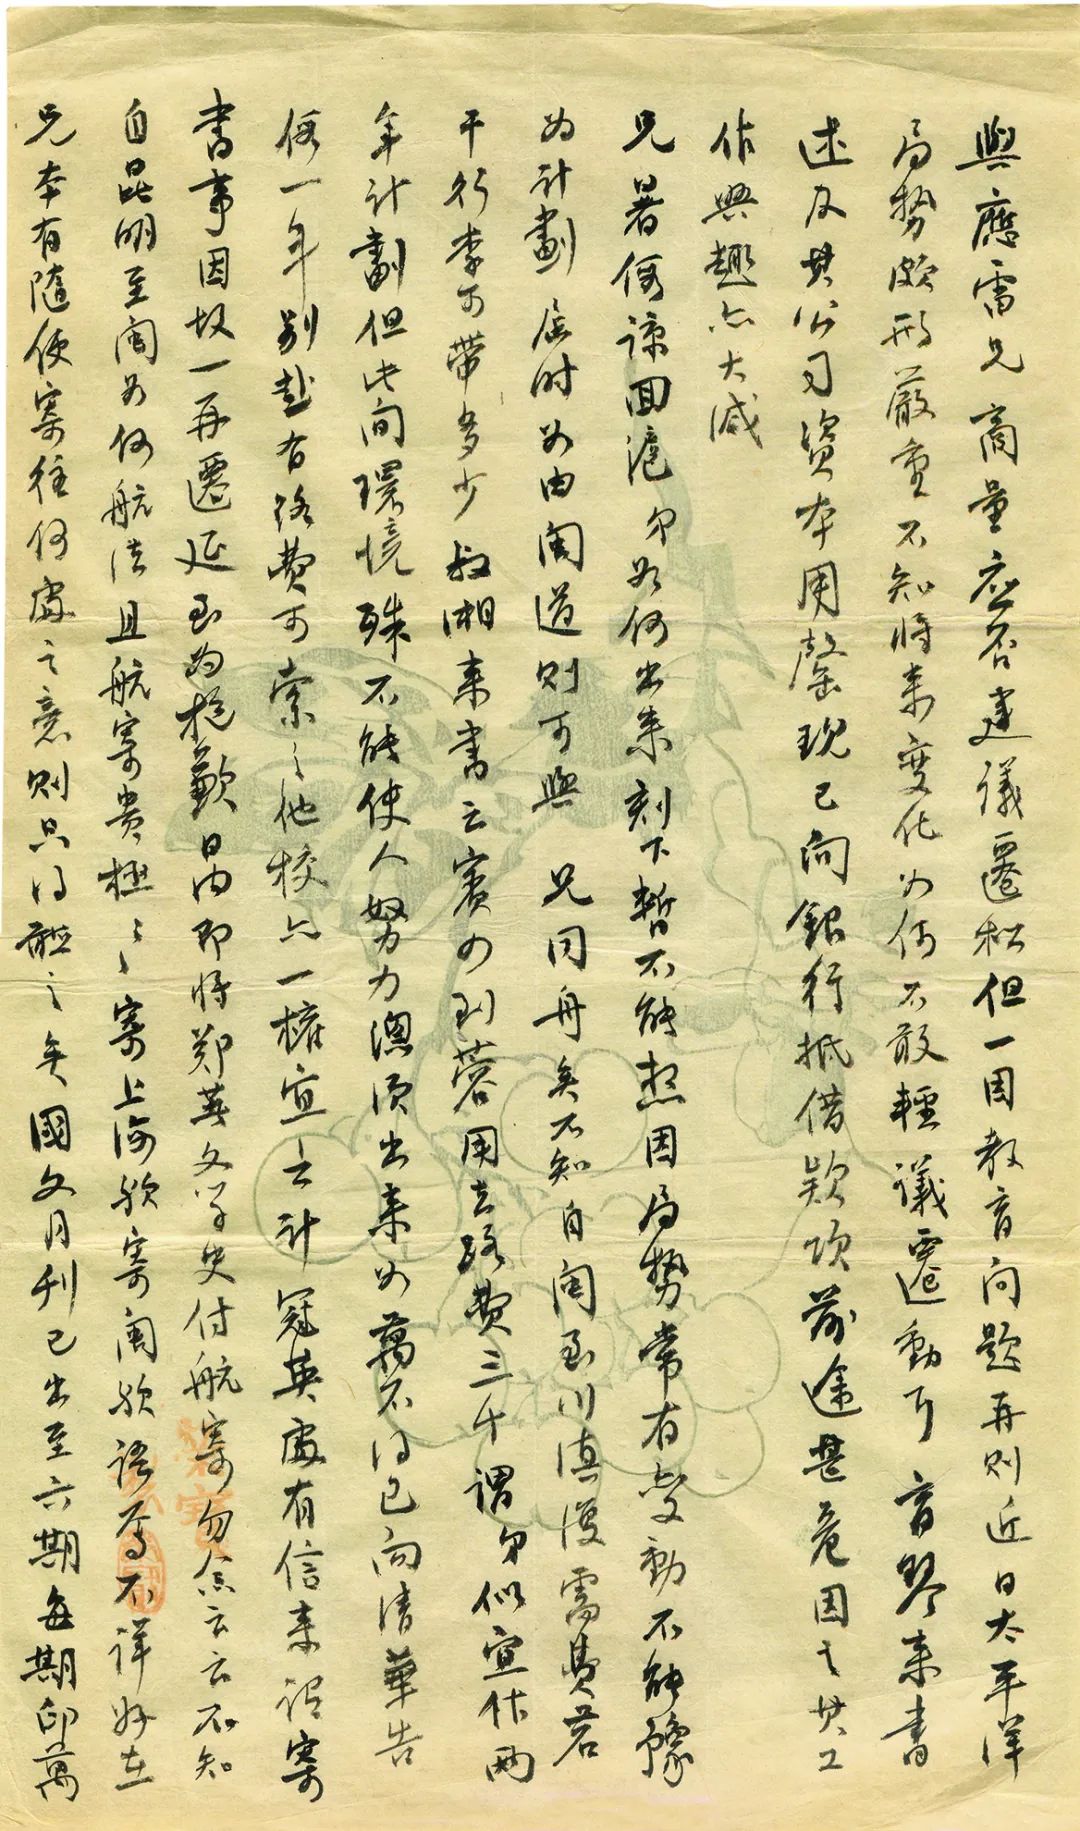 與應雷兄商量應否建議遷松但一因教育问題再則近日太平洋
局勢頗形嚴重不知将来變化如何不敢輕議遷動耳 育琴来書
述及其公司資本用罄現已向銀行抵借款項前途甚危因之其工
作興趣亦大減
兄暑假諒回滬弟如何出来刻下暫不能想因局勢常有變動不能豫
为計劃届时如由闽道則可與 兄同舟矣不知自闽至川滇復需費若
干行李可帶多少 叔湘来書云賽如到蓉用去路費三千 謂弟似宜作两
年計劃但此间環境殊不能使人努力總須出来如萬不得已向清華告
假一年别赴有路費可索之他校亦一權宜之计 冠英處有信来謂寄
書事因故一再遷延至为抱歉日内即将鄭著文学史付航寄勿念云云不知
自昆明至闽如何航法且航寄贵極之寄上海欤寄闽欤語焉不詳好在
兄本有隨便寄往何處之意則只得聽之矣 國文月刊已出至六期每期印萬